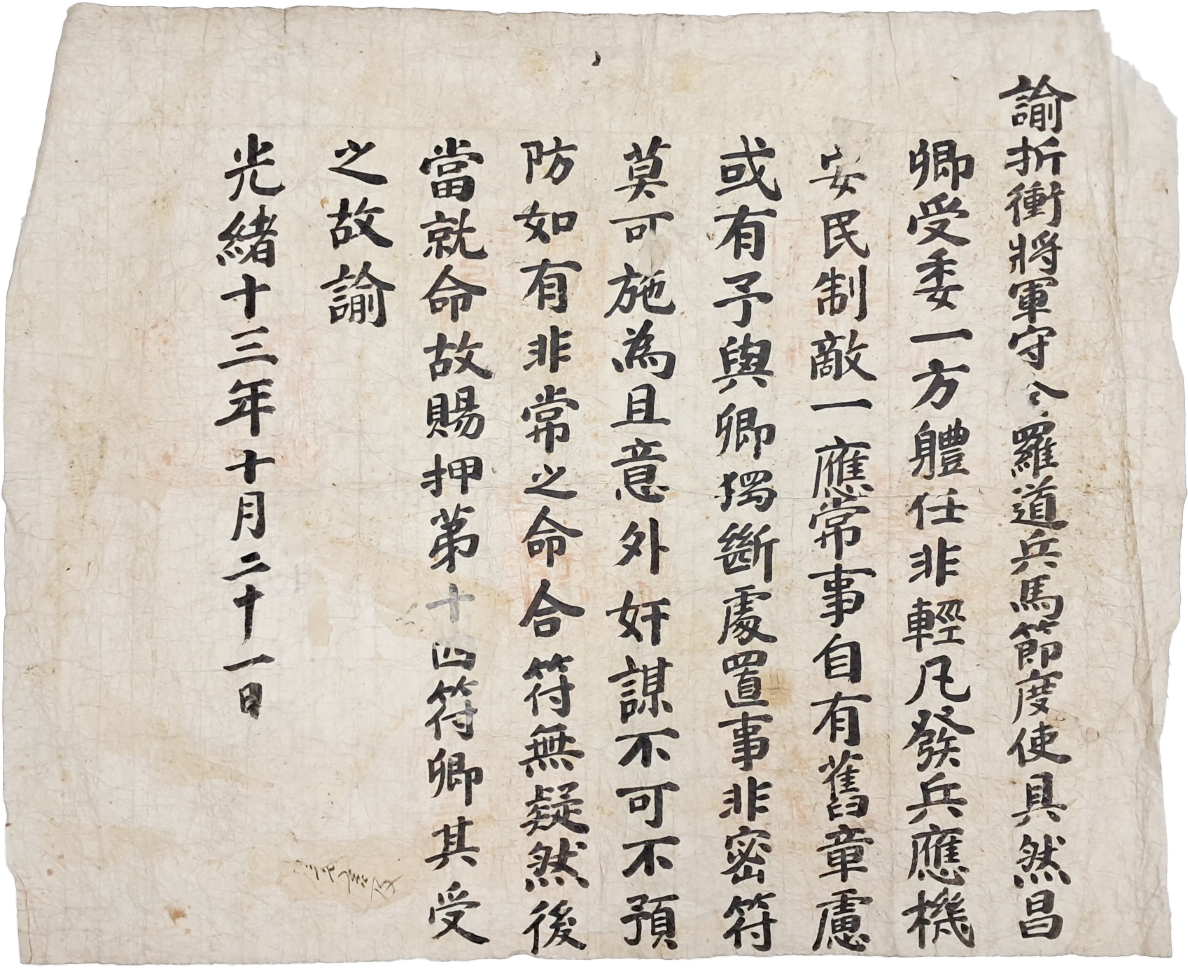 諭折衝將軍守全羅道兵馬節度使具然昌
卿受委一方體任非輕凡發兵應機
安民制敵一應常事自有舊章慮
或有予與卿獨斷處置事非密符
莫可施為且意外奸謀不可不預
防如有非常之命合符無疑然後
當就命故賜押第十四符卿其受
之故諭
光緒十三年十月二十一日